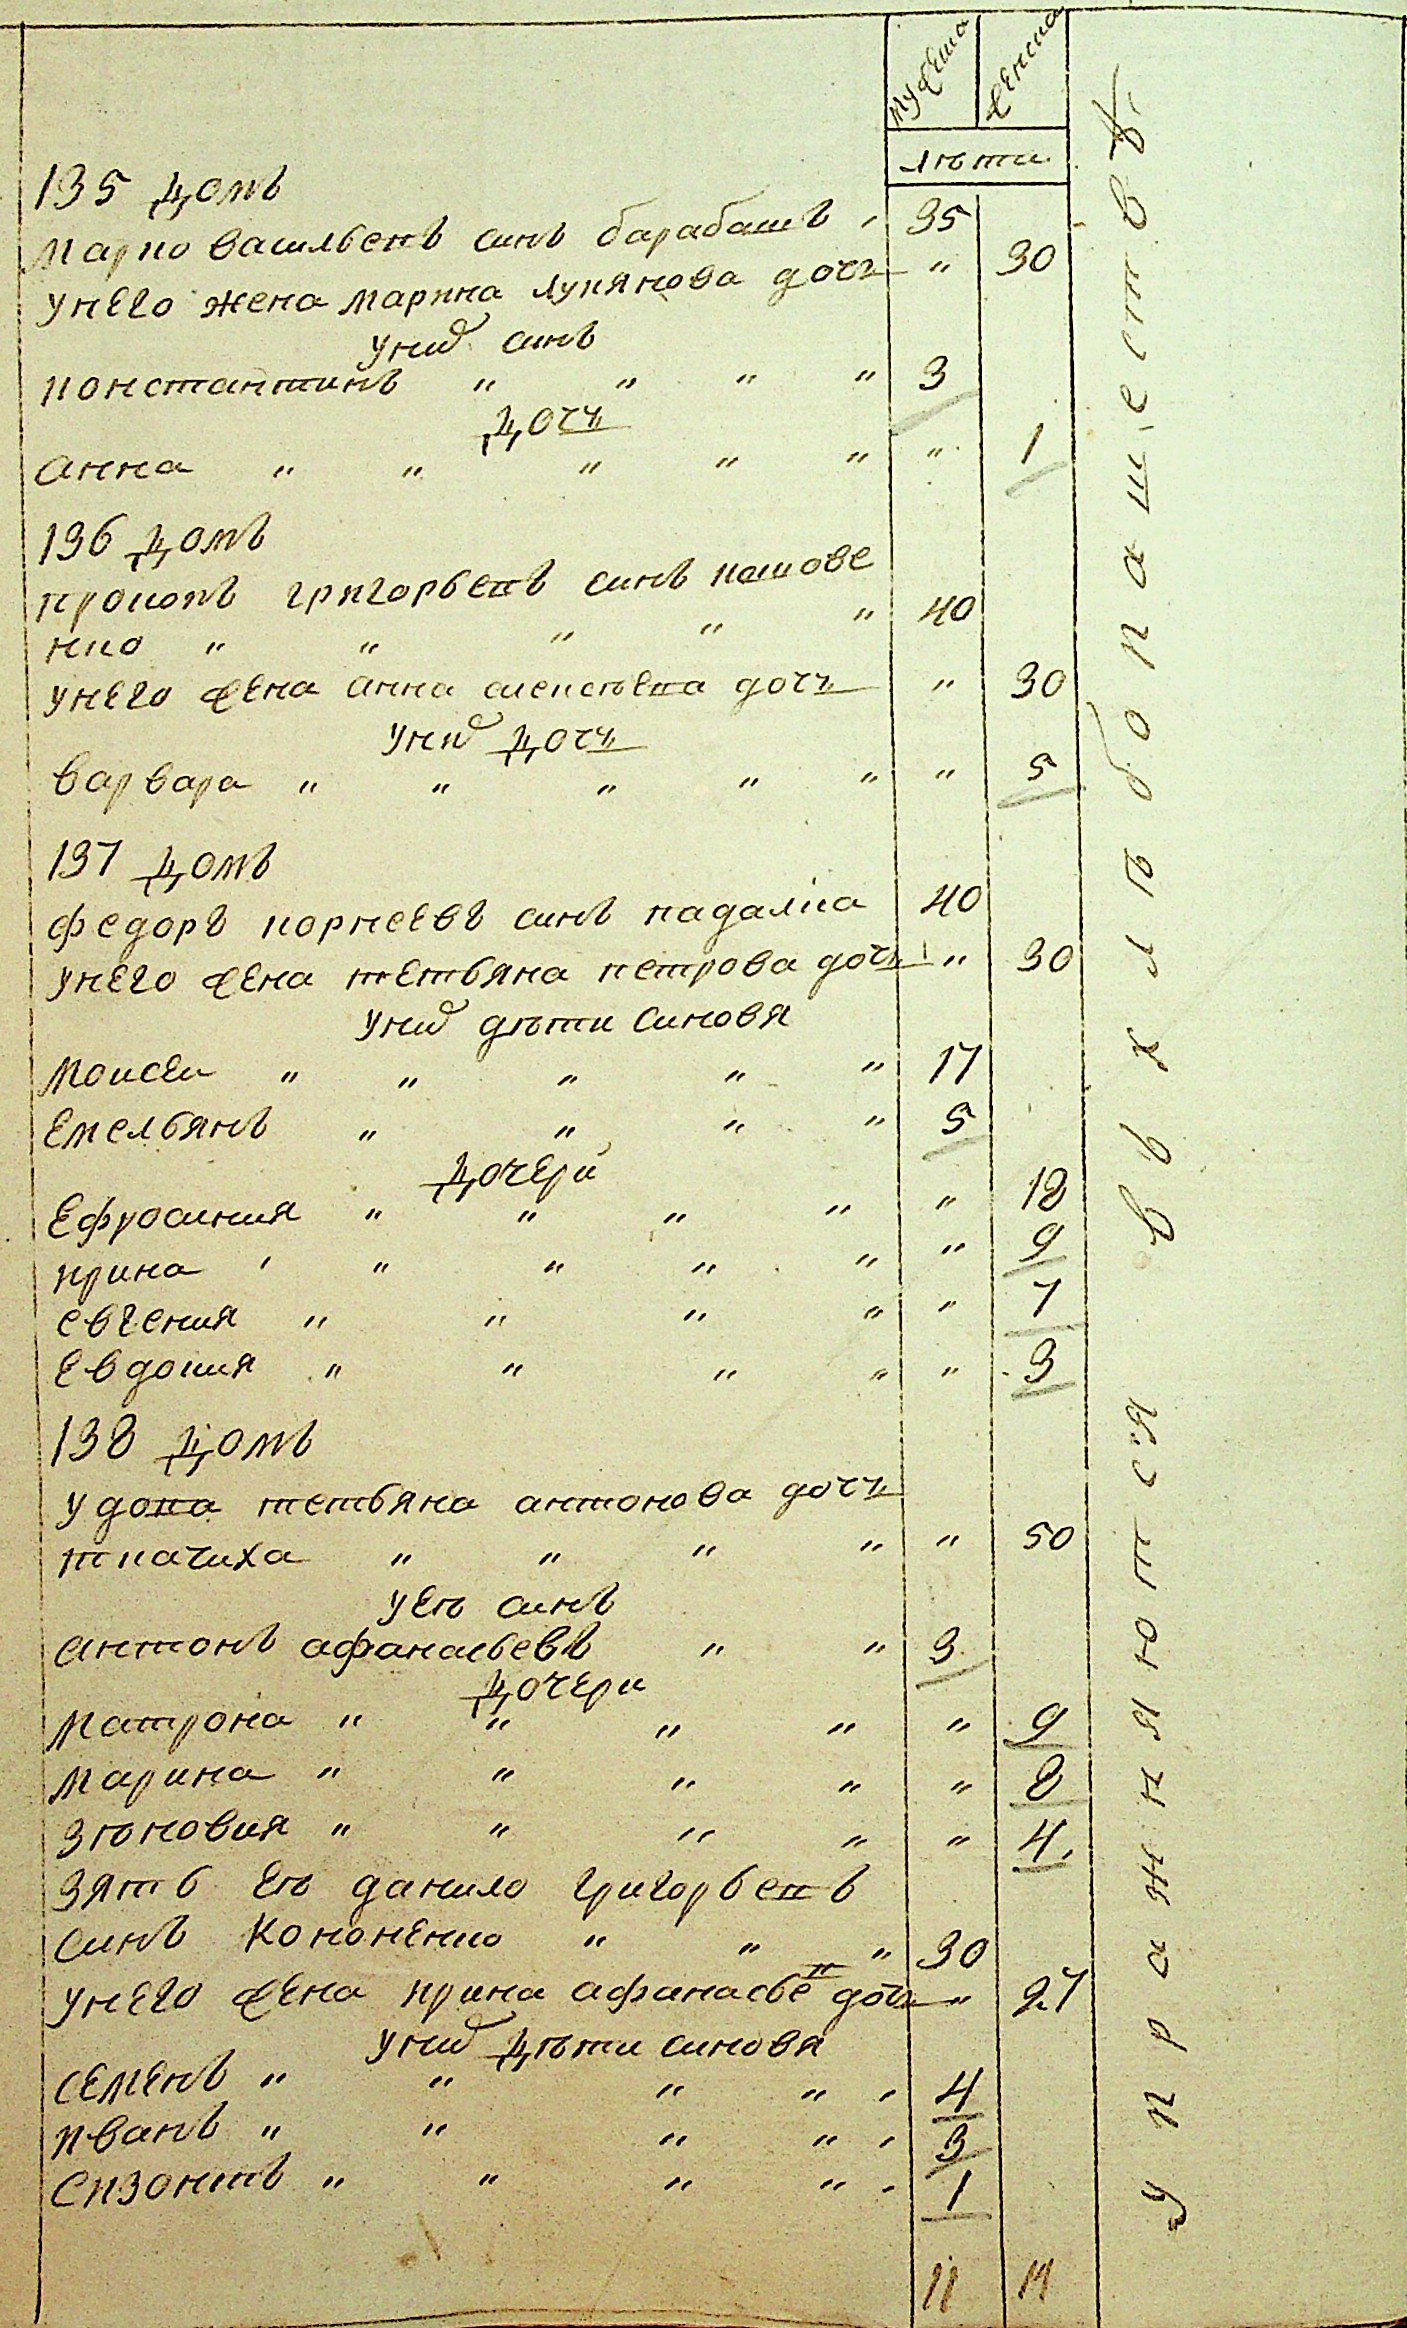 мужеска женска
лѣти
135 домъ
Марко васильевъ синъ барабашъ , 35
У него жена марина лукянова дочь " 30
у них синъ
константинъ " " " " 3
дочь
анна " " " " " " 1
136 домъ
прокопъ григорьевъ синъ кашове
нко " " " " " 40
у него жена анна алексѣева дочь " 30
у них дочь
варвара " " " " " " 5
137 домъ
федоръ корнеевъ синъ кадалка 40
у него жена тетьяна петрова дочь " 30
у них дѣти синовя
Моисеи " " " " " 17
Емельянъ " " " " 5
дочери
Ефросиния " " " " " 18
ирина ' " " " " " 9
евгения " " " " " 7
Евдокия " " " " " 3
138 домъ
удова тетьяна антонова дочь
ткачиха " " " " " 50
у еѣ синъ
антонъ афанасьевъ " " 3
дочери
Матрона " " " " " 9
Марина " " " " " 8
зѣновия " " " " " 4
зять еѣ данило григорьевъ
синъ Кононенко " " " 30
у него жена ирина афанасьев дочь " 27
у них дѣти синовя
семенъ " " " " , 4
иванъ " " " " , 3
сизонтъ " " " " , 1
11 14
упражняются в хлѣбопашествѣ